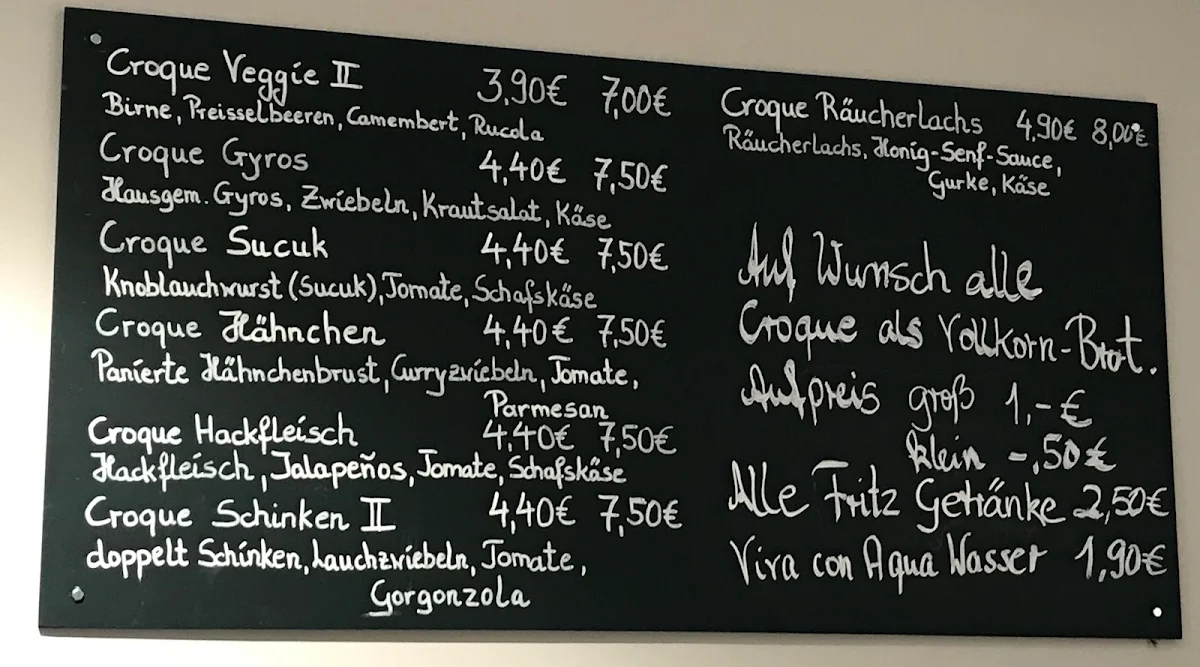 Croque Veggie II 3,90€ 7,00€
Birne, Preisselbeeren, Camembert, Rucola
Croque Gyros 4,40€ 7,50€
Hausgem. Gyros, Zwiebeln, Krautsalat, Käse
Croque Sucuk 4,40€ 7,50€
Knoblauchwurst (Sucuk), Tomate, Schafskäse
Croque Hähnchen 4,40€ 7,50€
Panierte Hähnchenbrust, Curryzwiebeln, Tomate,
Parmesan
Croque Hackfleisch 4,40€ 7,50€
Hackfleisch, Jalapeños, Tomate, Schafskäse
Croque Schinken II 4,40€ 7,50€
doppelt Schinken, Lauchzwiebeln, Tomate,
Gorgonzola
Croque Räucherlachs 4,90€ 8,00€
Räucherlachs, Honig-Senf-Sauce,
Gurke, Käse
Auf Wunsch alle
Croque als Vollkorn-Brot.
Aufpreis groß 1,-€
klein -,50€
Alle Fritz Getränke 2,50€
Viva con Aqua Wasser 1,90€